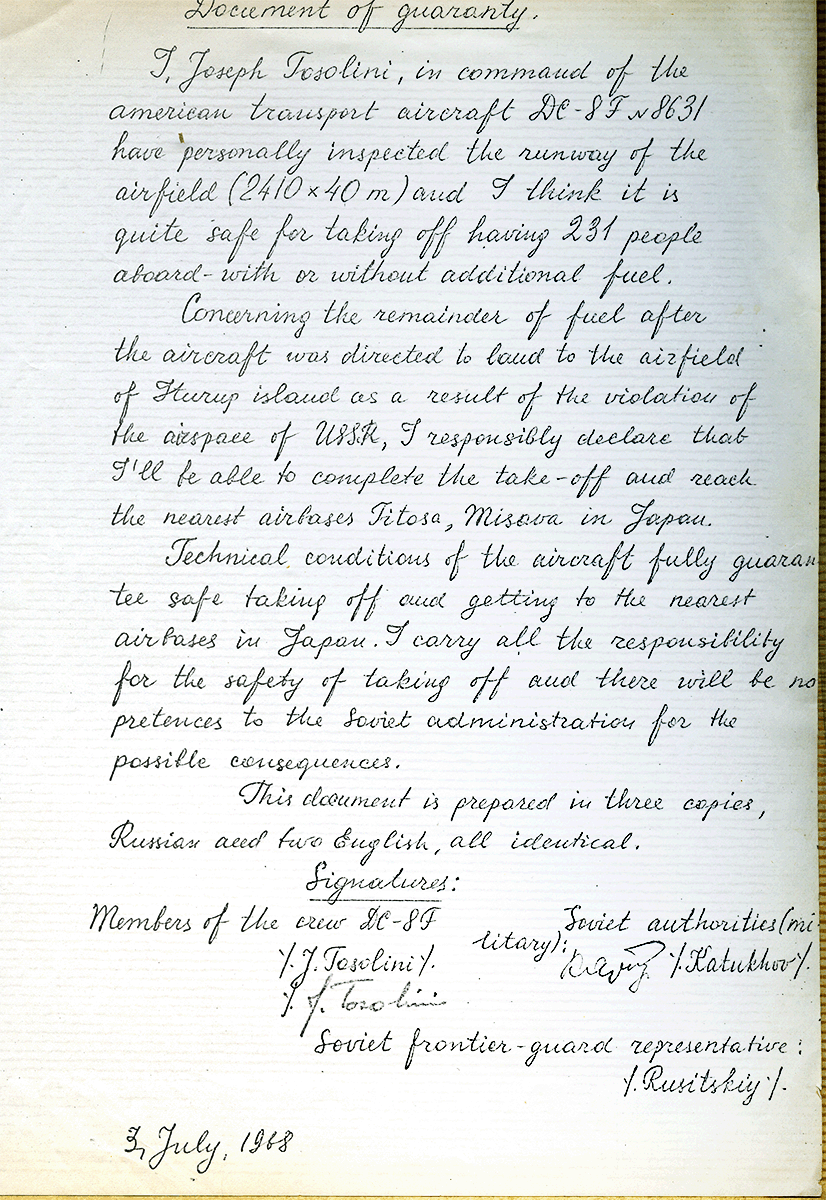 Document of guaranty.
I, Joseph Tosolini, in command of the
american transport aircraft DC-8F N8631
have personally inspected the runway of the
airfield (2410 × 40 m) and I think it is
quite safe for taking off having 231 people
aboard - with or without additional fuel.
Concerning the remainder of fuel after
the aircraft was directed to land to the airfield
of Iturup island as a result of the violation of
the airspace of USSR, I responsibly declare that
I'll be able to complete the take-off and reach
the nearest airbases Titosa, Misava in Japan.
Technical conditions of the aircraft fully guaran
tee safe taking off and getting to the nearest
airbases in Japan. I carry all the responsibility
for the safety of taking off and there will be no
pretences to the Soviet administration for the
possible consequences.
This document is prepared in three copies,
Russian and two English, all identical.
Signatures:
Members of the crew DC-8F
/. J. Tosolini /.
/. J. Tosolini
Soviet authorities (mi-
litary):
/. Katukhov /.
Soviet frontier-guard representative:
/. Rusitskiy /.
3, July, 1968